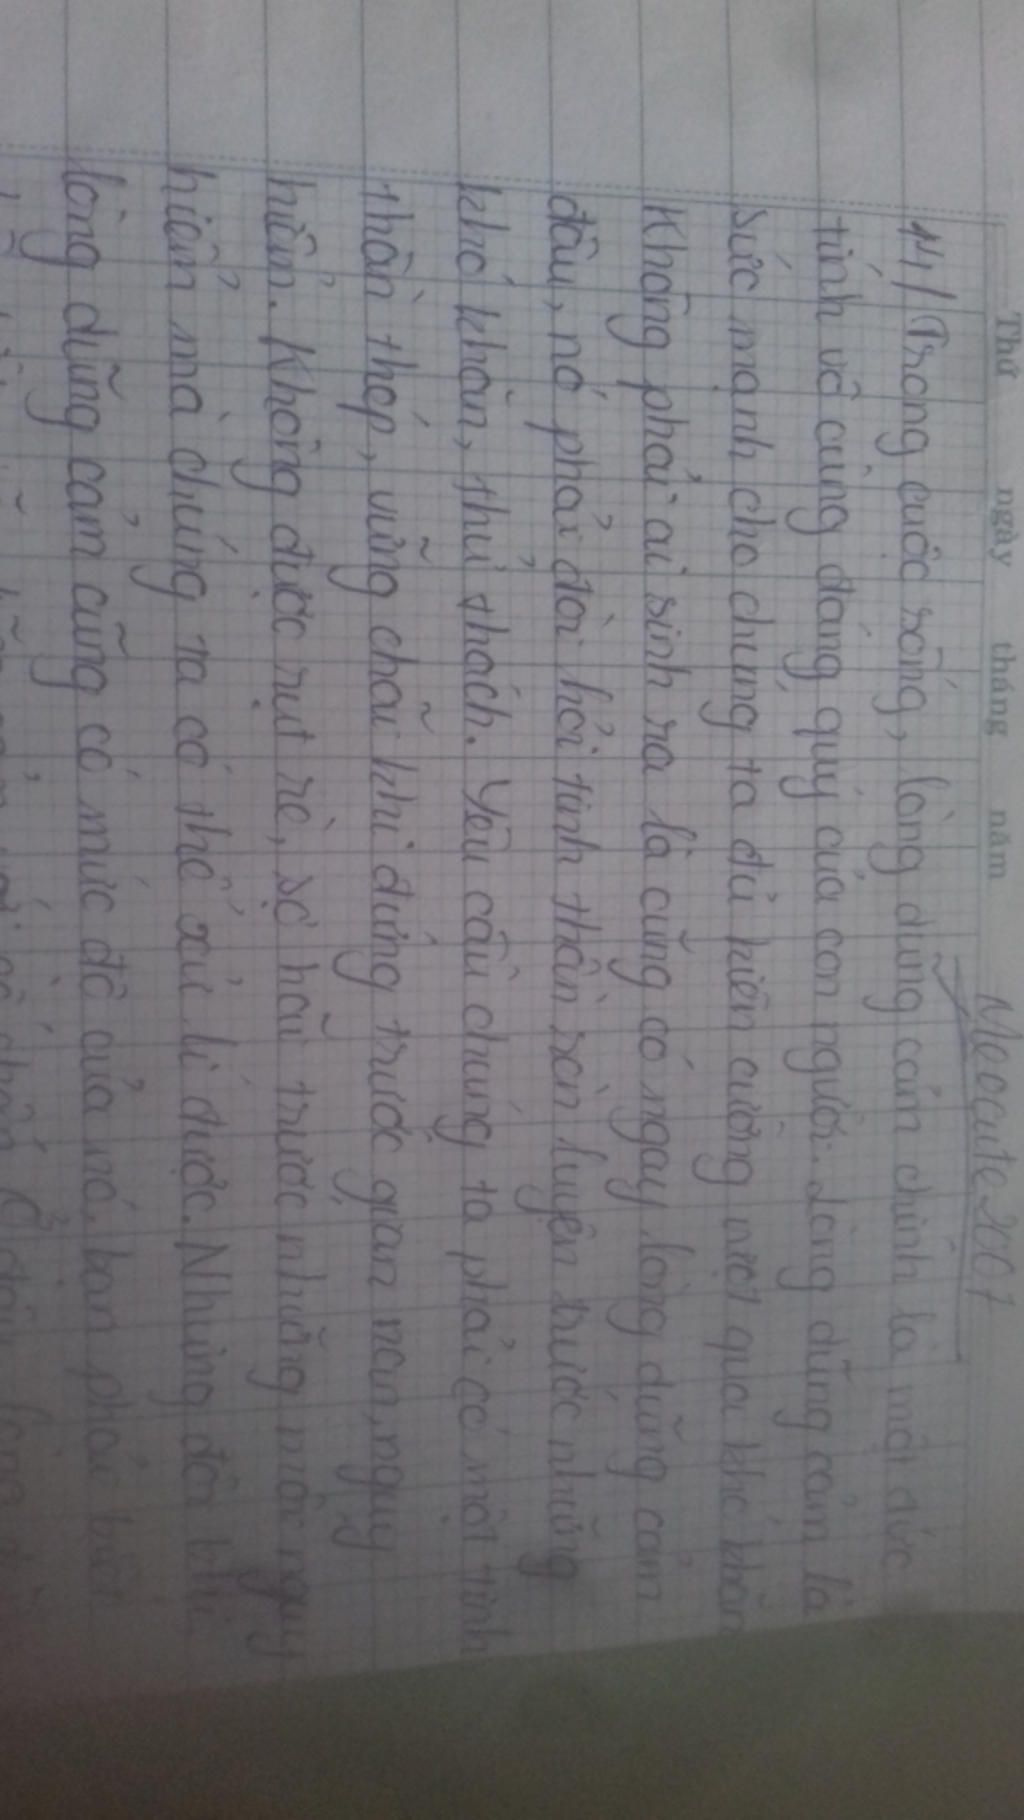 Thứ ngày tháng năm
Meocute2007
14/ Trong cuộc sống, lòng dũng cảm chính là một đức
tính vô cùng đáng quý của con người. Lòng dũng cảm là
sức mạnh cho chúng ta đủ kiên cường vượt qua khó khăn
Không phải ai sinh ra là cũng có ngay lòng dũng cảm
đâu, nó phải đòi hỏi tinh thần rèn luyện trước những
khó khăn, thử thách. Yêu cầu chúng ta phải có một tinh
thần thép, vững chãi khi đứng trước gian nan, nguy
hiểm. Không được rụt rè, sợ hãi trước những mối nguy
hiểm mà chúng ta có thể xử lí được. Nhưng đôi khi
lòng dũng cảm cũng có mức độ của nó, bạn phải biết